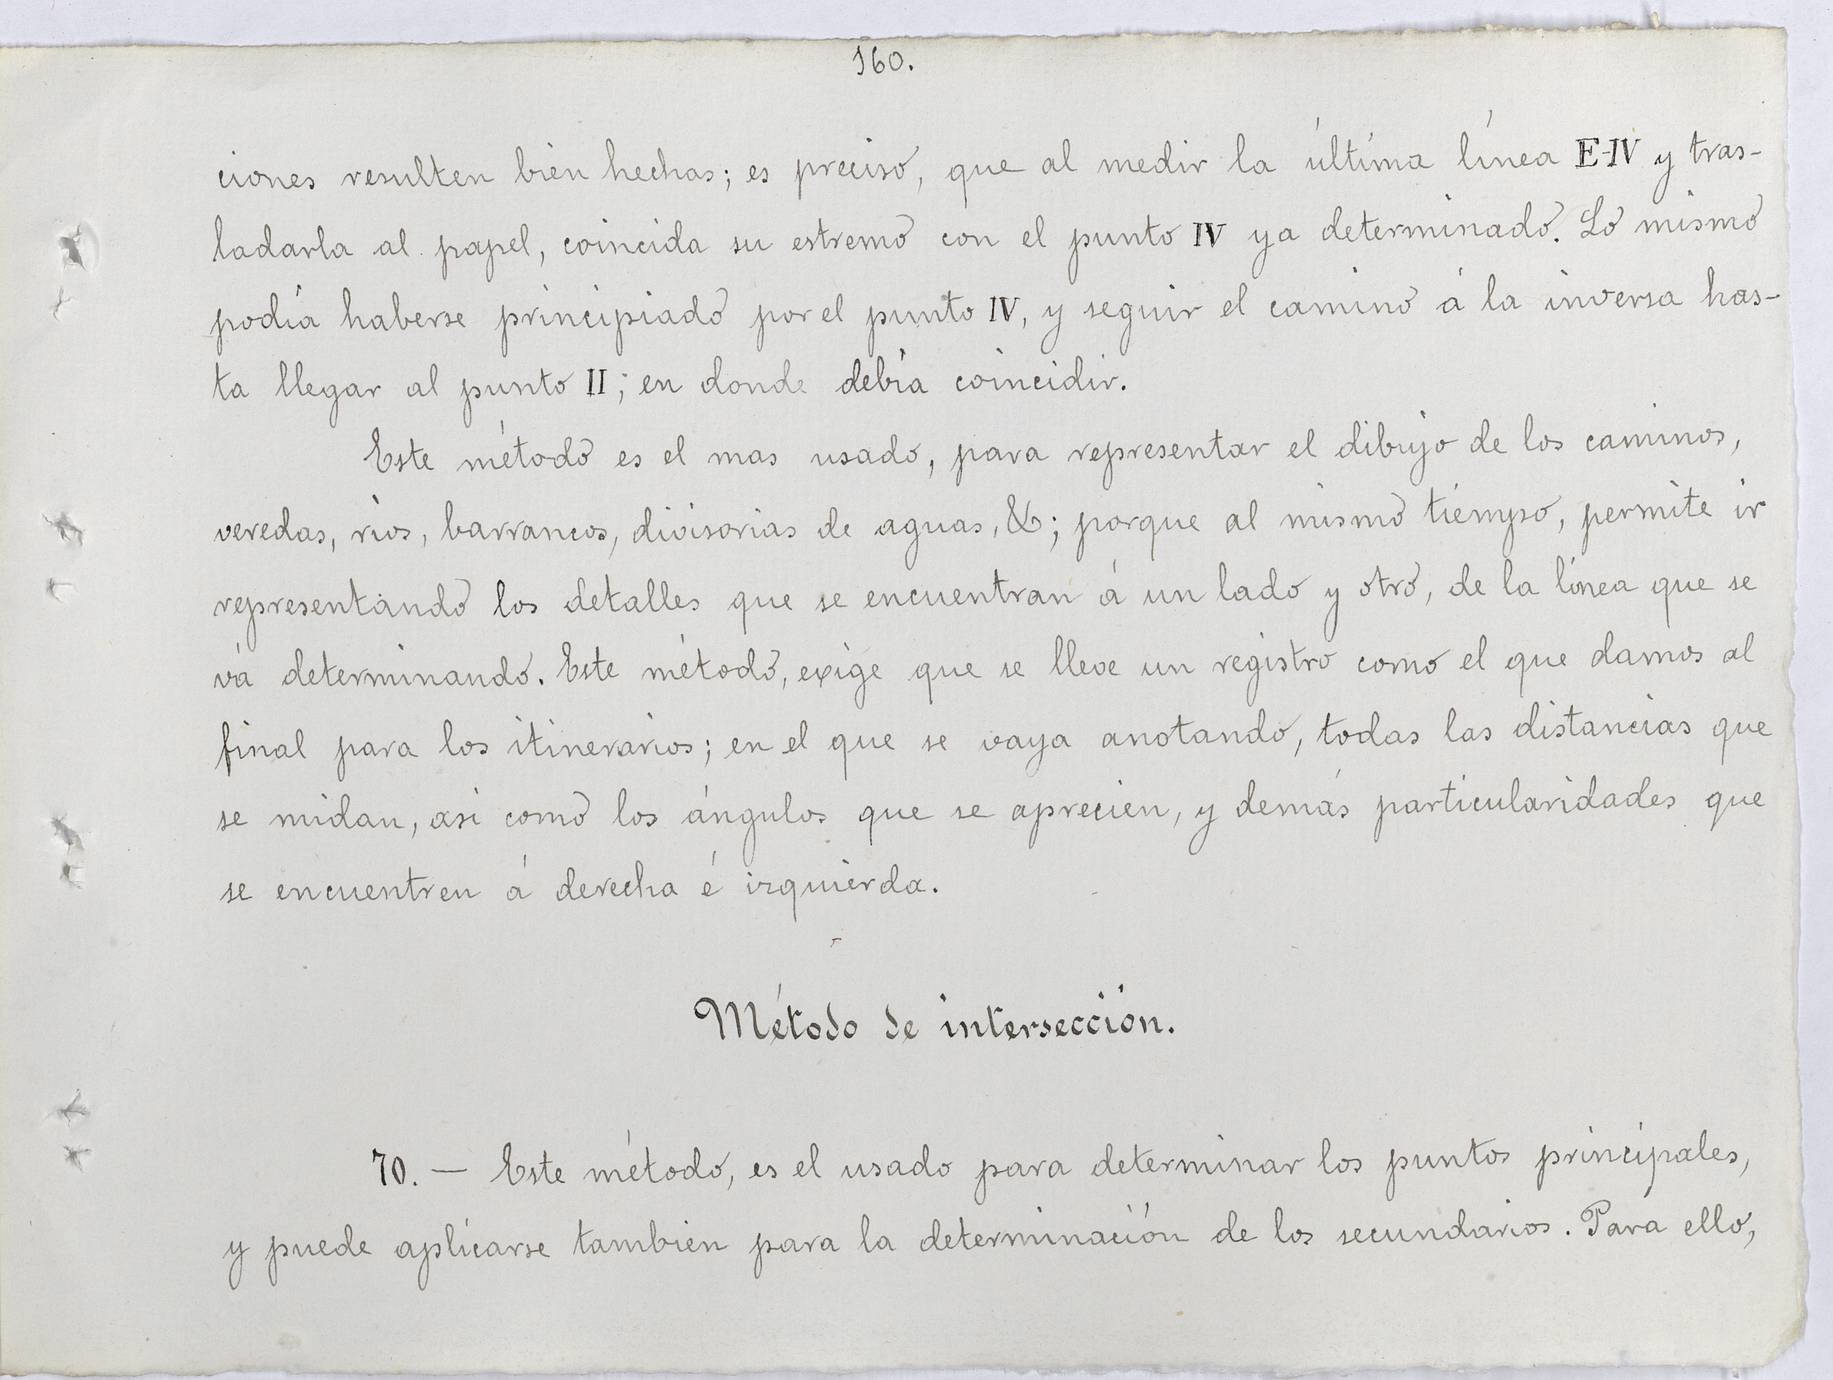 160.
ciones resulten bien hechas; es preciso, que al medir la última línea E-IV y tras-
ladarla al papel, coincida su estremo con el punto IV ya determinado. Lo mismo
podía haberse principiado por el punto IV, y seguir el camino á la inversa has-
ta llegar al punto II; en donde debía coincidir.
Este método es el mas usado, para representar el dibujo de los caminos,
veredas, rios, barrancos, divisorias de aguas, &; porque al mismo tiempo, permite ir
representando los detalles que se encuentran á un lado y otro, de la línea que se
vá determinando. Este método, exige que se lleve un registro como el que damos al
final para los itinerarios; en el que se vaya anotando, todas las distancias que
se midan, asi como los ángulos que se aprecien, y demás particularidades que
se encuentren á derecha é izquierda.
Método de intersección.
70. — Este método, es el usado para determinar los puntos principales,
y puede aplicarse tambien para la determinación de los secundarios. Para ello,